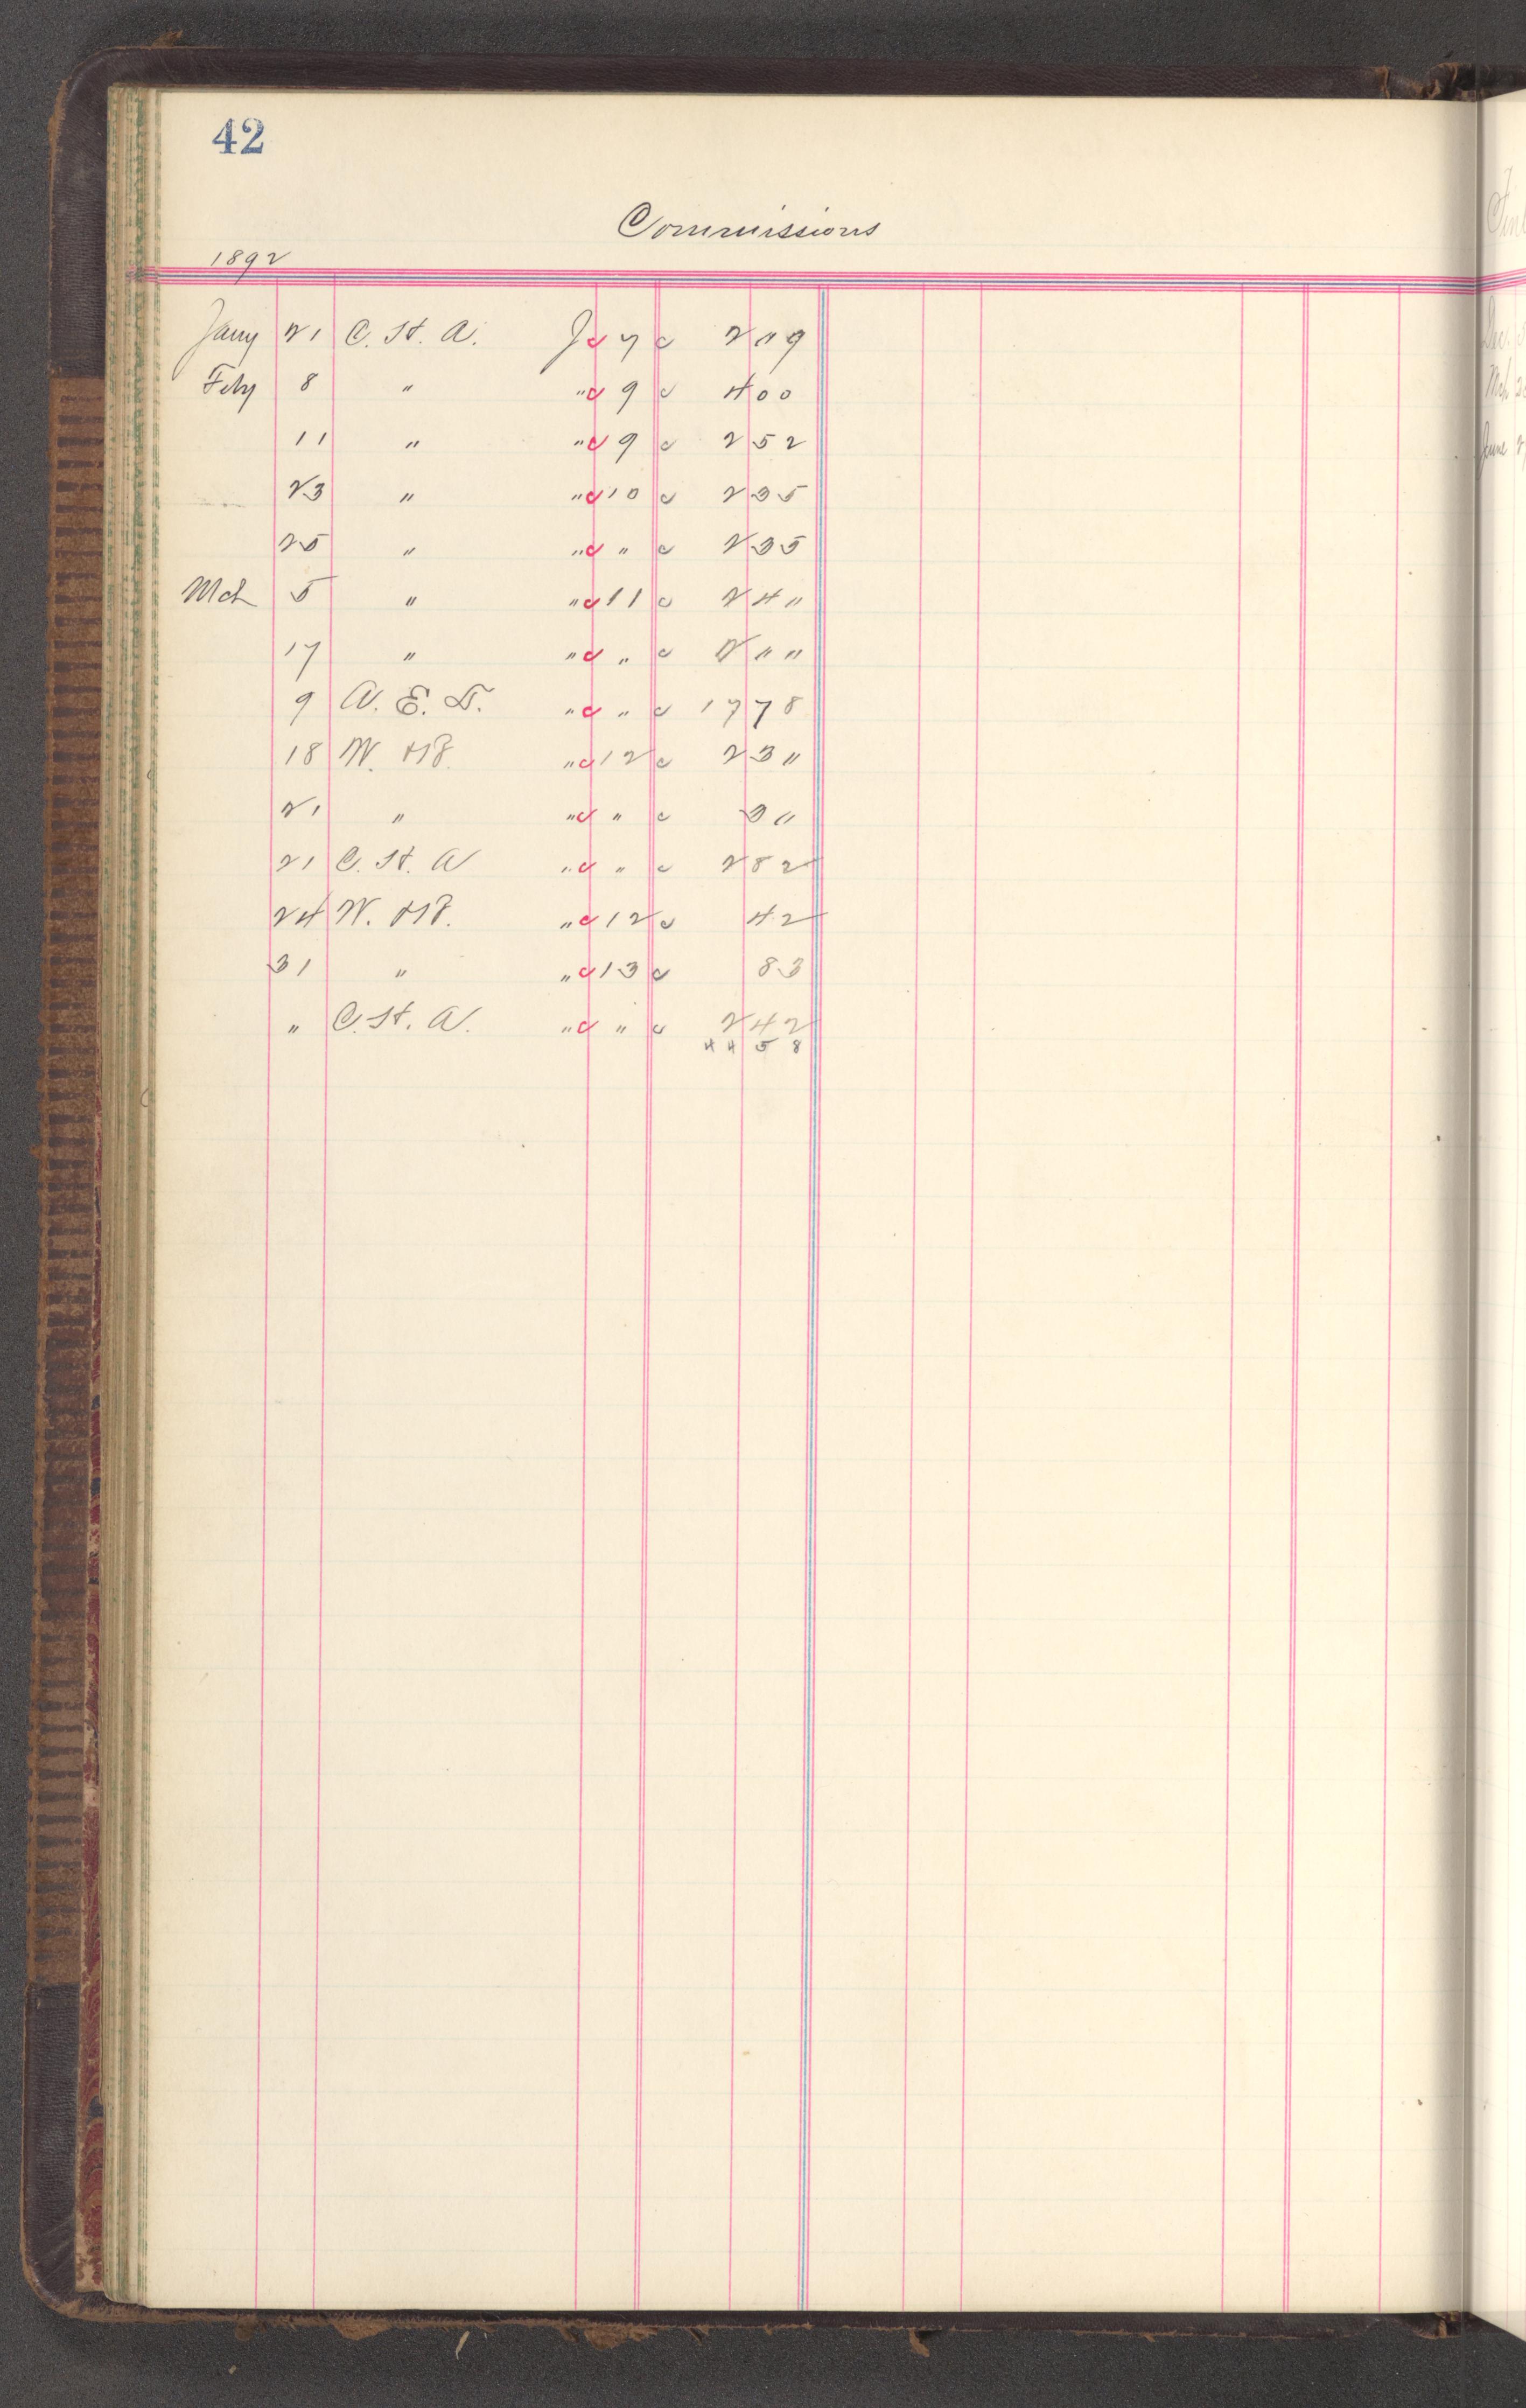 42
Commissions
1892
Jany 21 C. St. A. J 7 2 " 9
Feby 8 " " 9 4 00
11 " " 9 2 52
23 " " 10 2 35
25 " " " 2 35
Mch 5 " " 11 2 4 "
17 " " " 2 " "
9 A. E. D. " " 17 78
18 W. " 12 2 3 "
21 " " " 3 "
21 C. St. A " " 2 82
24 W. " 12 42
31 " " 13 83
" C. St. A. " " 2 42
44 58
Dec.
Mch 2
June 2